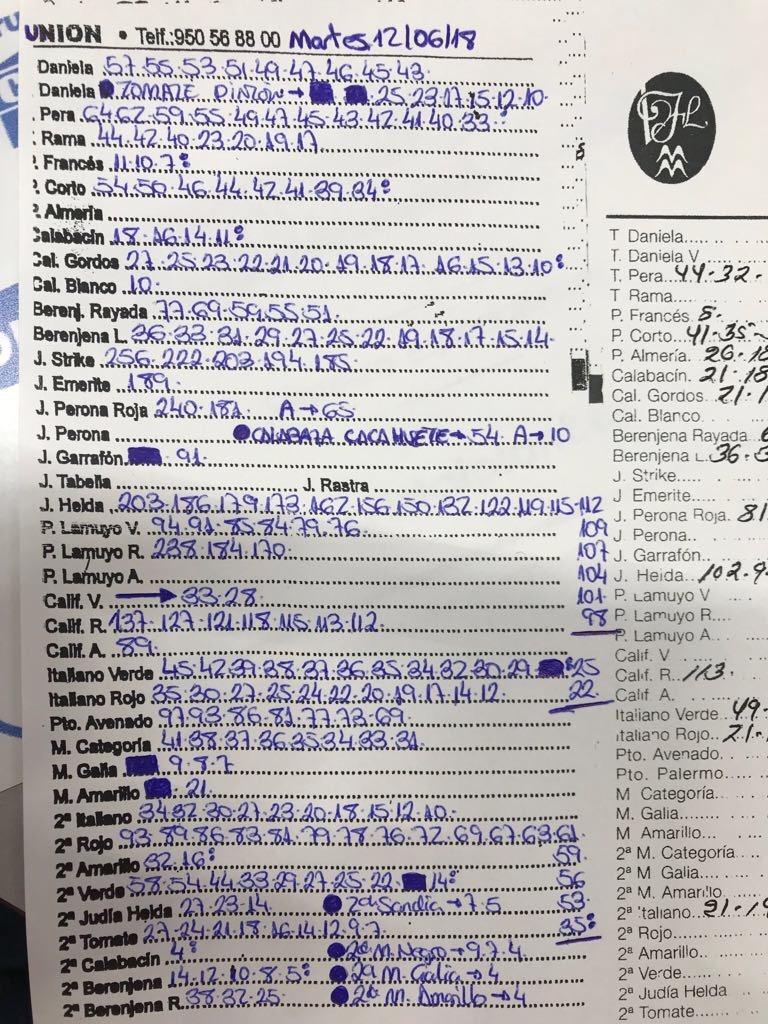 UNION • Telf.: 950 56 88 00 Martes 12/06/18
Daniela 57.55.53.51.49.47.46.45.43.
Daniela TOMATE PINTON→ 25.23.17.15.12.10.
Pera 64.62.59.55.49.47.45.43.42.41.40.33.
Rama 44.42.40.23.20.19.17
P. Francés 11.10.7
P. Corto 54.50.46.44.42.41.39.34
P. Almería
Calabacín 18.16.14.11
Cal. Gordos 27.25.23.22.21.20.19.18.17.16.15.13.10
Cal. Blanco 10.
Berenj. Rayada 77.69.59.55.51.
Berenjena L. 36.33.31.29.27.25.22.19.18.17.15.14.
J. Strike 256.222.203.194.185
J. Emerite 189.
J. Perona Roja 240.181. A→65
J. Perona CALABAZA CACAHUETE→54. A→10
J. Garrafón 91.
J. Tabella J. Rastra
J. Helda 203.186.179.173.162.156.150.132.122.119.115.112
109
P. Lamuyo V. 94.91.85.84.79.76.
107
P. Lamuyo R. 238.184.170.
104
P. Lamuyo A.
101
Calif. V. → 33.28.
98
Calif. R. 137.127.121.118.115.113.112.
Calif. A. 89.
Italiano Verde 45.42.39.38.37.36.35.34.32.30.29. 25
22
Italiano Rojo 35.30.27.25.24.22.20.19.17.14.12.
Pto. Avenado 97.93.86.81.77.73.69.
M. Categoría 41.38.37.36.35.34.33.31.
M. Galia 9.8.7
M. Amarillo 21.
2ª Italiano 34.32.30.27.23.20.18.15.12.10.
2ª Rojo 93.89.86.83.81.79.78.76.72.69.67.63.61
59
2ª Amarillo 32.16
56
2ª Verde 58.54.44.33.29.27.25.22. 14
53
2ª Judía Helda 27.23.14 2ª Sandia→7.5
35
2ª Tomate 27.24.21.18.16.14.12.9.7
2ª Calabacín 4 2ª M. Negro→9.7.4
2ª Berenjena 14.12.10.8.5 2ª M. Galia→4
2ª Berenjena R. 38.32.25. 2ª M. Amarillo→4
T Daniela
T. Daniela V
T. Pera 44-32-
T Rama
P. Francés 5.
P. Corto 41-35
P. Almería. 26-18
Calabacín. 21-18
Cal. Gordos 21-1
Cal. Blanco
Berenjena Rayada
Berenjena L. 36-3
J. Strike
J Emerite
J. Perona Roja. 81
J. Perona
J. Garrafón
J. Helda 102-9
P. Lamuyo V
P. Lamuyo R
P. Lamuyo A
Calif. V
Calif. R. 113.
Calif. A.
Italiano Verde 49-
Italiano Rojo 21-
Pto. Avenado
Pto. Palermo
M Categoría
M. Galia
M Amarillo
2ª M. Categoría
2ª M. Galia
2ª M. Amarillo
2ª Italiano 21-19
2ª Rojo
2ª Amarillo
2ª Verde
2ª Judía Helda
2ª Tomate